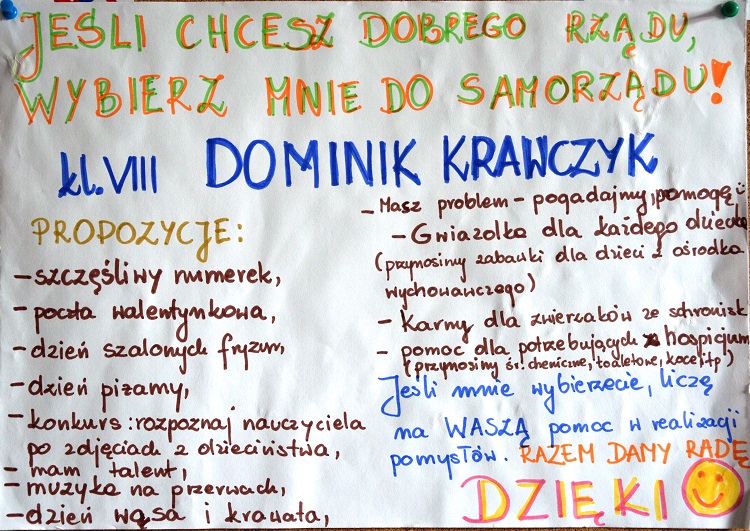 JEŚLI CHCESZ DOBREGO RZĄDU,
WYBIERZ MNIE DO SAMORZĄDU!
kl. VIII DOMINIK KRAWCZYK
PROPOZYCJE:
- szczęśliwy numerek,
- poczta walentynkowa,
- dzień szalonych fryzur,
- dzień piżamy,
- konkurs: rozpoznaj nauczyciela
po zdjęciach z dzieciństwa,
- mam talent,
- muzyka na przerwach,
- dzień wąsa i krawata,
- Masz problem - pogadajmy, pomogę :)
- Gwiazdka dla każdego dziecka
(przynosimy zabawki dla dzieci z ośrodka
wychowawczego)
- Karmy dla zwierzaków ze schronisk
- pomoc dla potrzebujących z hospicjum
(przynosimy śr. chemiczne, toaletowe, koce itp)
Jeśli mnie wybierzecie, liczę
na WASZĄ pomoc w realizacji
pomysłów. RAZEM DAMY RADĘ
DZIĘKI